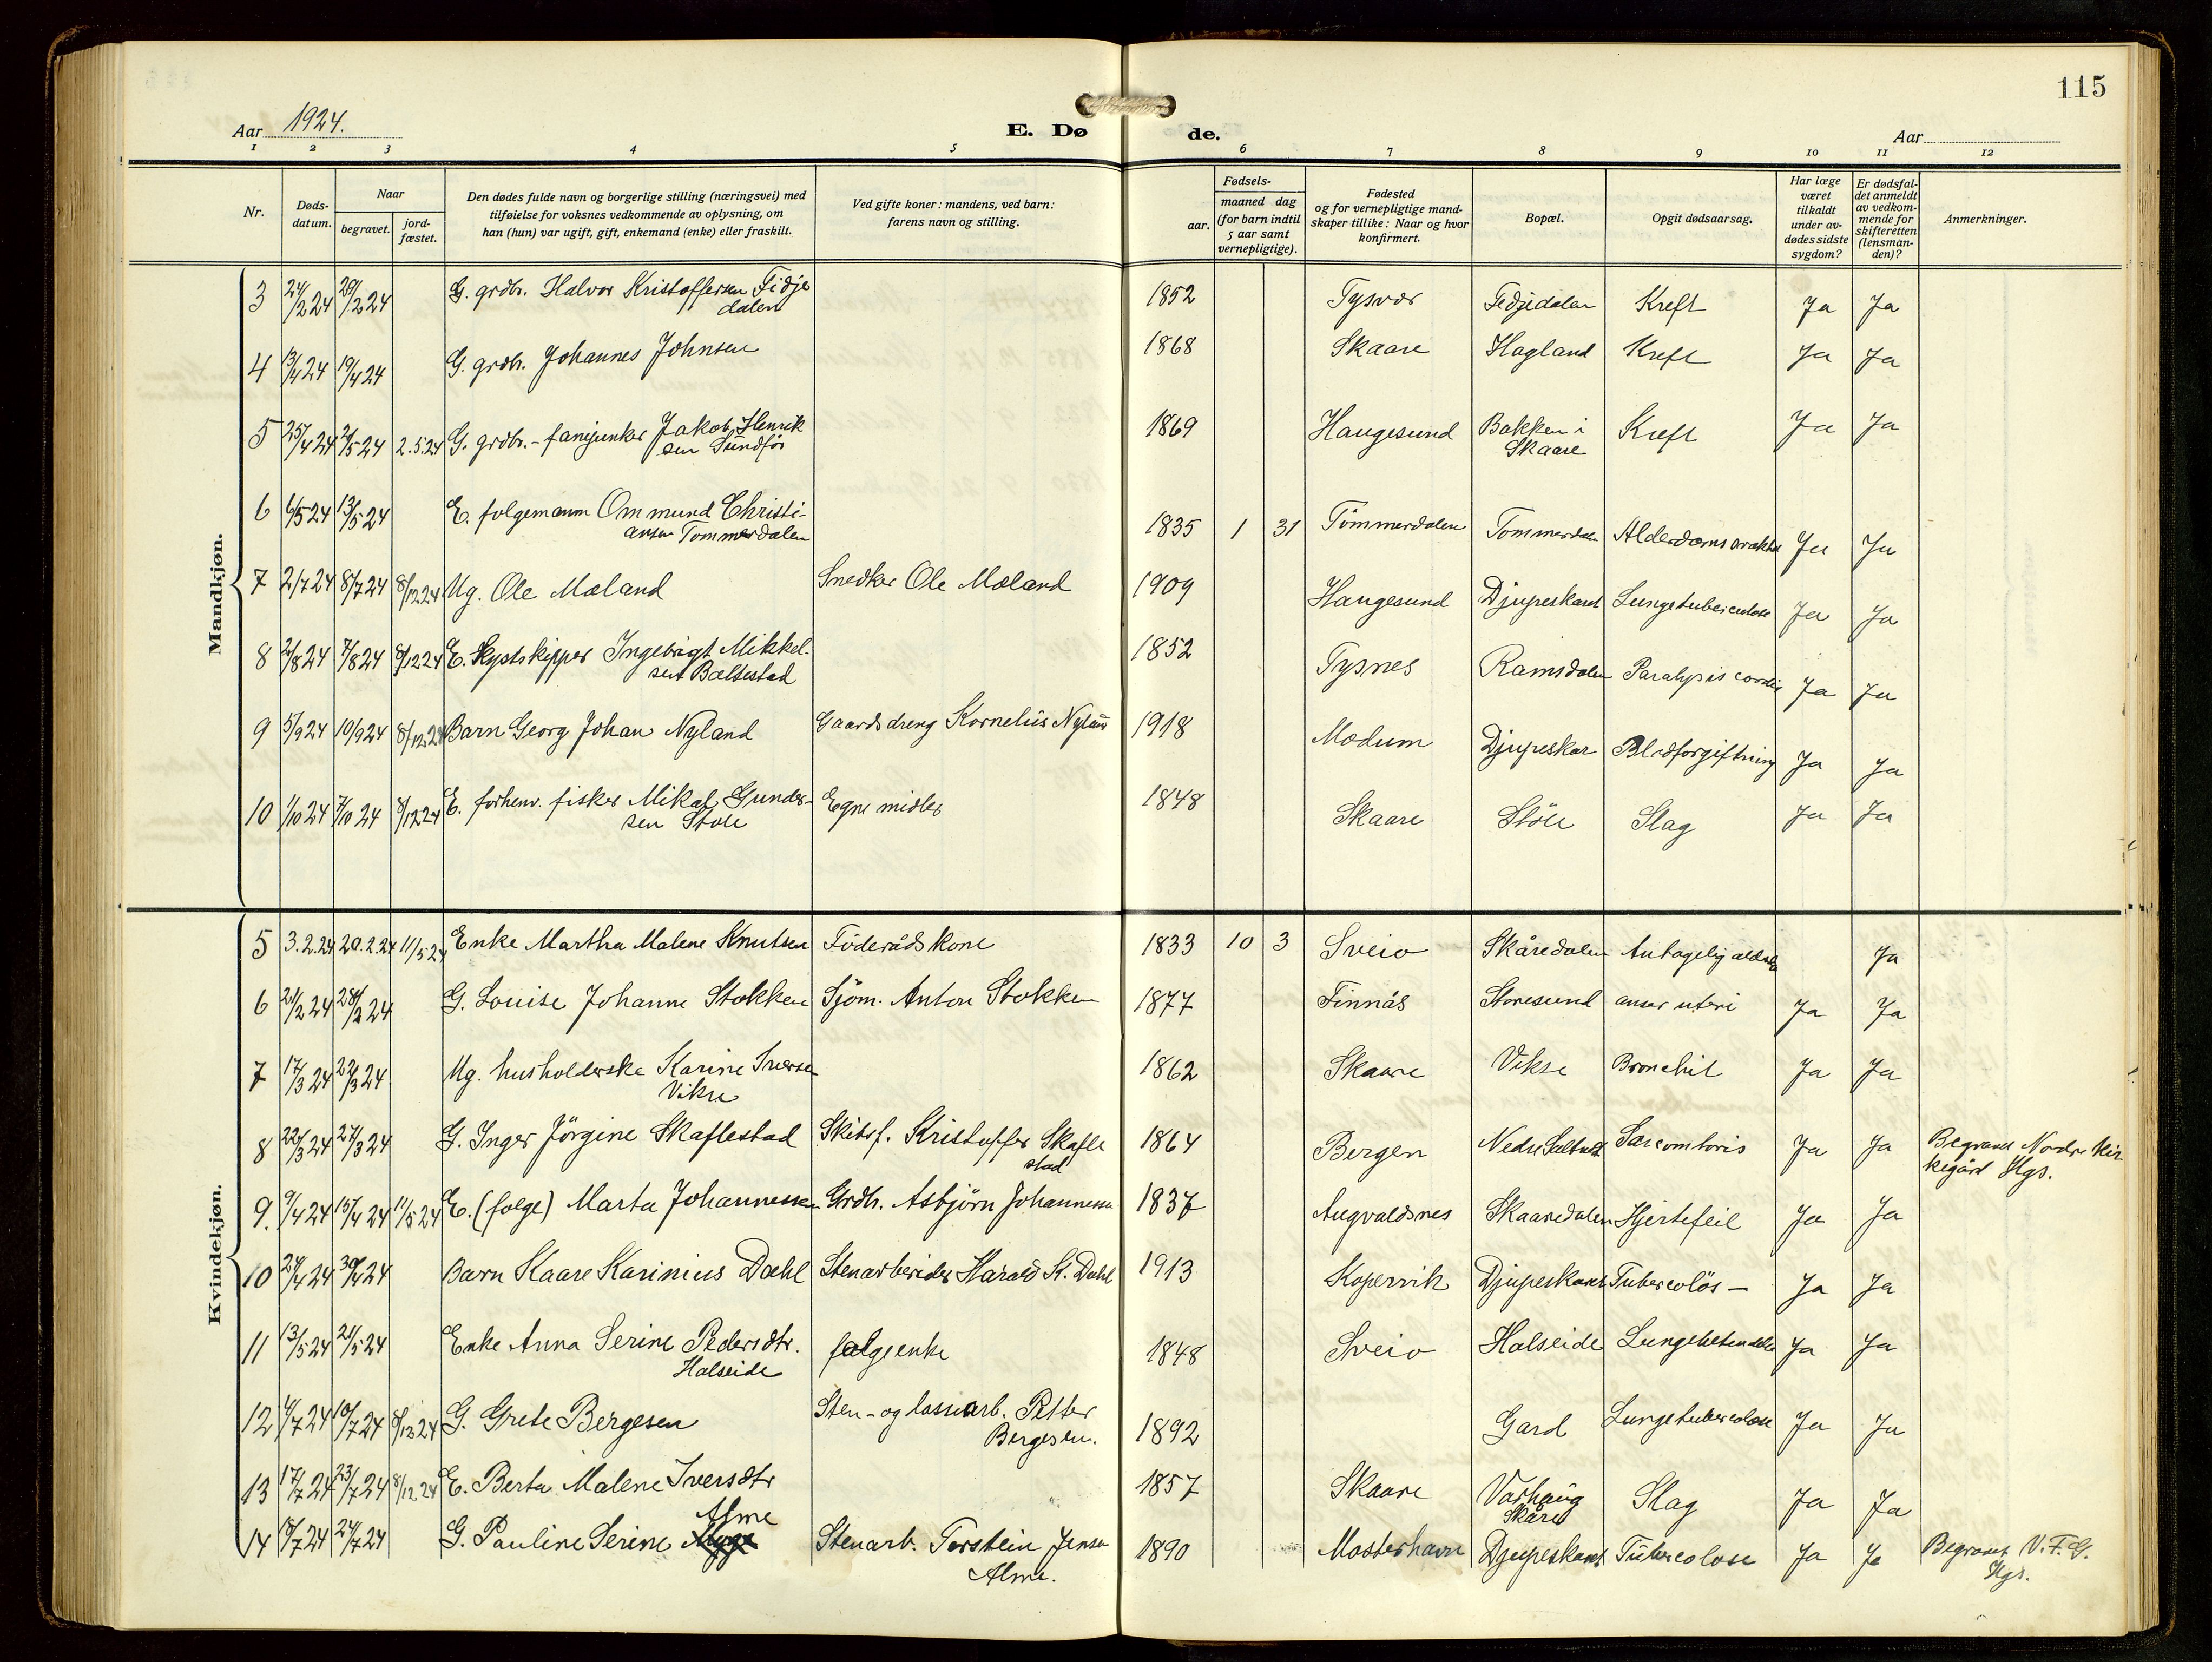 115
Aar 1924.
E. Dø de.
Aar
1 2 3 4 5 6 7 8 9 10 11 12
Nr.
Døds-
datum.
Naar
begravet.
jord-
fæstet.
Den dødes fulde navn og borgerlige stilling (næringsvei) med
tilføielse for voksnes vedkommende av oplysning, om
han (hun) var ugift, gift, enkemand (enke) eller fraskilt.
Ved gifte koner: mandens, ved barn:
farens navn og stilling.
Fødsels-
aar.
maaned dag
(for barn indtil
5 aar samt
vernepligtige).
Fødested
og for vernepligtige mand-
skaper tillike: Naar og hvor
konfirmert.
Bopæl.
Opgit dødsaarsag.
Har læge
været
tilkaldt
under av-
dødes sidste
sygdom?
Er dødsfal-
det anmeldt
av vedkom-
mende for
skifteretten
(lensman-
den)?
Anmerkninger.
Mandkjøn.
3 24/2 24 29/2 24 G. grdbr. Halvor Kristoffersen Fidje 1852 Tysvær Fedjedalen Kreft Ja Ja
dalen
4 13/4 24 19/4 24 G. grdbr. Johannes Johnsen 1868 Skaare Hagland Kreft Ja Ja
5 25/4 24 2/5 24 2.5.24 G. grdbr.-fanejunker Jakob Henrik 1869 Haugesund Bakken i Kreft Ja Ja
sen Sundfør Skaare
6 6/5 24 13/5 24 E. folgemann Ommund Christi- 1835 1 31 Tömmerdalen Tommerdalen Ja Ja
ansen Tommerdalen
7 2/7 24 8/7 24 8/12 24 Ug. Ole Mæland Snedker Ole Mæland 1909 Haugesund Djupeskard Lungetuberculose Ja Ja
8 2/8 24 7/8 24 8/12 24 E. Kystskipper Ingebrigt Mikkel- 1852 Tysnes Ramsdalen Paralysis cordis Ja Ja
sen Baltestad
9 5/9 24 10/9 24 8/12 24 Barn Georg Johan Nyland Gaardsdreng Kornelius Nyland 1918 Modum Djupeskar Blodforgiftning Ja Ja
10 1/10 24 7/10 24 8/12 24 E. forhenv. fisker Mikal Gunder- Egne midler 1848 Skaare Stöle Slag Ja Ja
sen Stole
Kvindekjøn.
5 3.2.24 20.2.24 11/5 24 Enke Martha Malene Knutsen Föderåds kone 1833 10 3 Sveio Skåredalen Antagelig Ja
6 21/2 24 28/2 24 G. Louise Johanne Stokken Sjöm. Anton Stokken 1877 Finnås Storesund uteri Ja Ja
7 17/3 24 22/3 24 Ug. husholderske Karine Iversen 1862 Skaare Vikse Bronchit Ja Ja
Vikse
8 22/3 24 27/3 24 G. Inger Jörgine Skaflestad Skibsf. Kristoffer Skafle 1864 Bergen Nedre Ja Ja Begravet Nordre Kir
stad kegård Hgs.
9. 9/4 24 15/4 24 11/5 24 E. (folge) Marta Johannessen Grdbr. Asbjörn Johannessen 1837 Augvaldsnes Skaaredalen Hjertefeil Ja Ja
10 24/4 24 30/4 24 Barn Kaare Karinius Dahl Stenarbeider Harald K. Dahl 1913 Kopervik Djupeskard Tuberculös — Ja Ja
11 13/5 24 21/5 24 Enke Anna Serine Pedersdtr. folgeenke 1848 Sveio Halseide Ja Ja
Halseide
12 4/7 24 10/7 24 8/12 24 G. Grete Bergesen Sten- og lossearb. Petter 1892 Gard Lungetuberculose Ja Ja
Bergesen.
13 17/7 24 23/7 24 8/12 24 E. Berta Malene Iversdtr 1857 Skaare Varhaug Slag Ja Ja
Skåre
Alme
14 18/7 24 24/7 24 G. Pauline Serine Stenarb. Torstein Jensen 1890 Mosterhavn Djupeskard Tuberculose Ja Ja Begravet V.F.G.
Alme. Hgs.